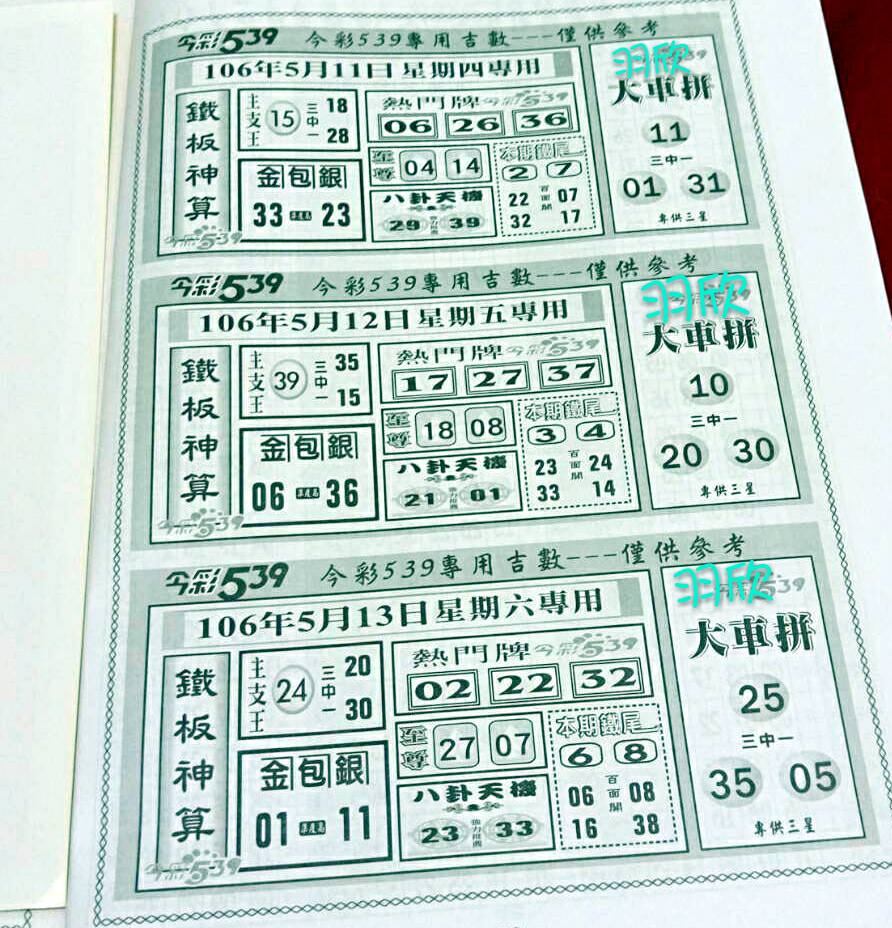 今彩539 今彩539專用吉數---僅供參考
106年5月11日星期四專用
鐵板神算
主支王 15 三中一 18 28
金包銀
33 準度高 23
今彩539
熱門牌 今彩539
06 26 36
至尊 04 14
八卦天機
29 強力推薦 39
本期鐵尾
2 7
22 百面開 07
32 17
羽欣
大車拼
11
三中一
01 31
專供三星
今彩539 今彩539專用吉數---僅供參考
106年5月12日星期五專用
鐵板神算
主支王 39 三中一 35 15
金包銀
06 準度高 36
今彩539
熱門牌 今彩539
17 27 37
至尊 18 08
八卦天機
21 強力推薦 01
本期鐵尾
3 4
23 百面開 24
33 14
羽欣
大車拼
10
三中一
20 30
專供三星
今彩539 今彩539專用吉數---僅供參考
106年5月13日星期六專用
鐵板神算
主支王 24 三中一 20 30
金包銀
01 準度高 11
今彩539
熱門牌 今彩539
02 22 32
至尊 27 07
八卦天機
23 強力推薦 33
本期鐵尾
6 8
06 百面開 08
16 38
羽欣
大車拼
25
三中一
35 05
專供三星